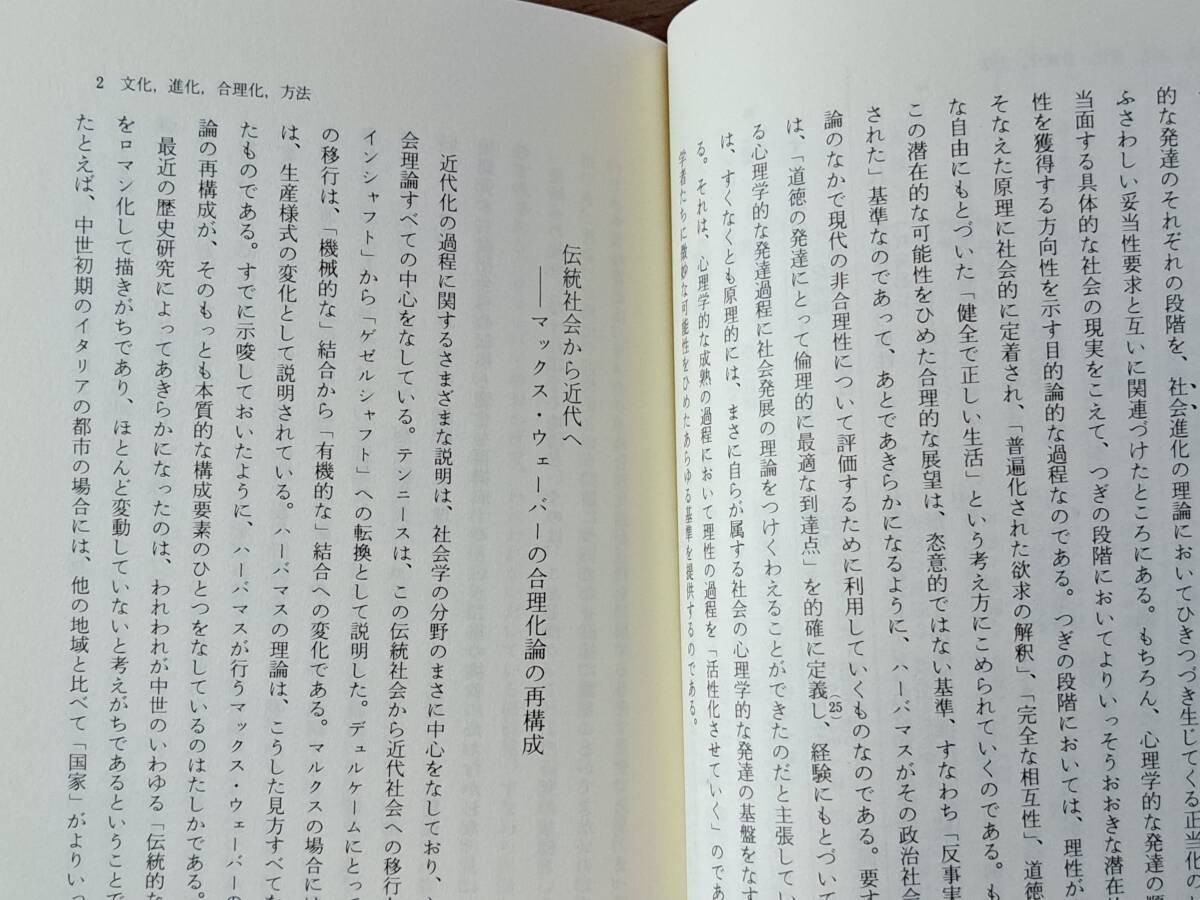 的な発達のそれぞれの段階を、社会進化の理論においてひきつづき生じてくる正当化の
ふさわしい妥当性要求と互いに関連づけたところにある。もちろん、心理学的な発達の順
当面する具体的な社会の現実をこえて、つぎの段階においてよりいっそうおおきな潜在的
性を獲得する方向性を示す目的論的な過程なのである。つぎの段階においては、理性が
そなえた原理に社会的に定着され、「普遍化された欲求の解釈」、「完全な相互性」、道徳
な自由にもとづいた「健全で正しい生活」という考え方にこめられていくのである。も
この潜在的な可能性をひめた合理的な展望は、恣意的ではない基準、すなわち「反事実
された」基準なのであって、あとであきらかになるように、ハーバマスがその政治社会
論のなかで現代の非合理性について評価するために利用していくものなのである。要す
は、「道徳の発達にとって倫理的に最適な到達点」を的確に定義し、(25)経験にもとづいて
る心理学的な発達過程に社会発展の理論をつけくわえることができたのだと主張してい
は、すくなくとも原理的には、まさに自らが属する社会の心理学的な発達の基盤をなす
る。それは、心理学的な成熟の過程において理性の過程を「活性化させていく」のであ
学者たちに微妙な可能性をひめたあらゆる基準を提供するのである。
2 文化，進化，合理化，方法
伝統社会から近代へ
――マックス・ウェーバーの合理化論の再構成
近代化の過程に関するさまざまな説明は、社会学の分野のまさに中心をなしており、
会理論すべての中心をなしている。テンニースは、この伝統社会から近代社会への移行
インシャフト」から「ゲゼルシャフト」への転換として説明した。デュルケームにとって
の移行は、「機械的な」結合から「有機的な」結合への変化である。マルクスの場合に
は、生産様式の変化として説明されている。ハーバマスの理論は、こうした見方すべて
たものである。すでに示唆しておいたように、ハーバマスが行うマックス・ウェーバーの
論の再構成が、そのもっとも本質的な構成要素のひとつをなしているのはたしかである。
最近の歴史研究によってあきらかになったのは、われわれが中世のいわゆる「伝統的な
をロマン化して描きがちであり、ほとんど変動していないと考えがちであるということで
たとえば、中世初期のイタリアの都市の場合には、他の地域と比べて「国家」がよりい